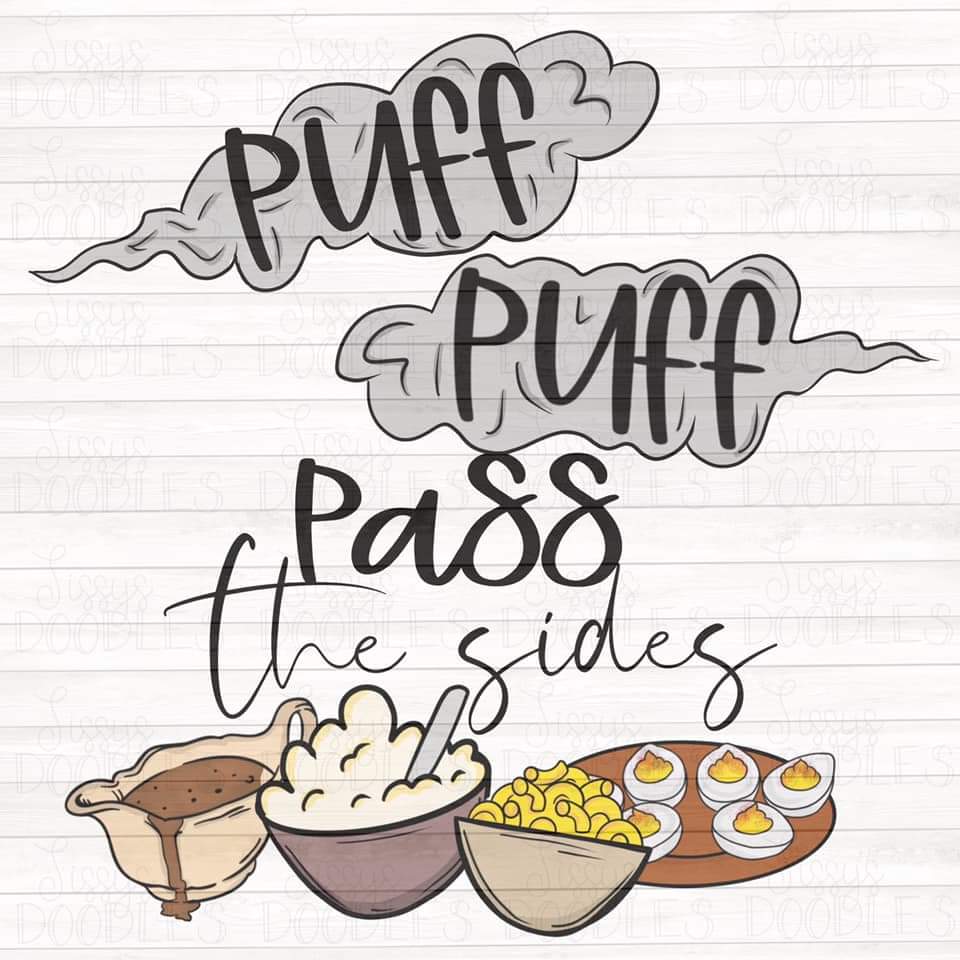 puff
puff
Pass
the sides
Sissys
DOODLES